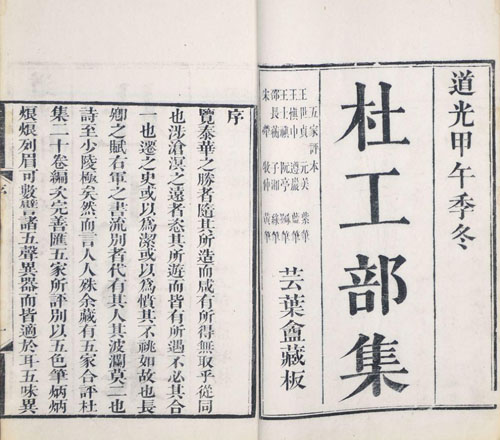 道光甲午季冬
杜工部集
五家評本
王世貞 元美 紫筆
王慎中 遵巖 藍筆
王士 阮亭 筆
邵長蘅 子湘 綠筆
宋犖 牧仲 黃筆
芸葉盦藏板
序
覽泰華之勝者隨其所造而咸有所得無取乎從同
也涉滄溟之遠者恣其所遊而皆有所遇不必其合
一也遷之史或以為潔或以為憤其不祧如故也長
卿之賦右軍之書流別者代有其人其波瀾莫二也
詩至少陵極矣然而言人人殊余藏有五家合評杜
集二十卷編次完善匯五家所評別以五色筆炳炳
烺烺列眉可數譬諸五聲異器而皆適於耳五味異